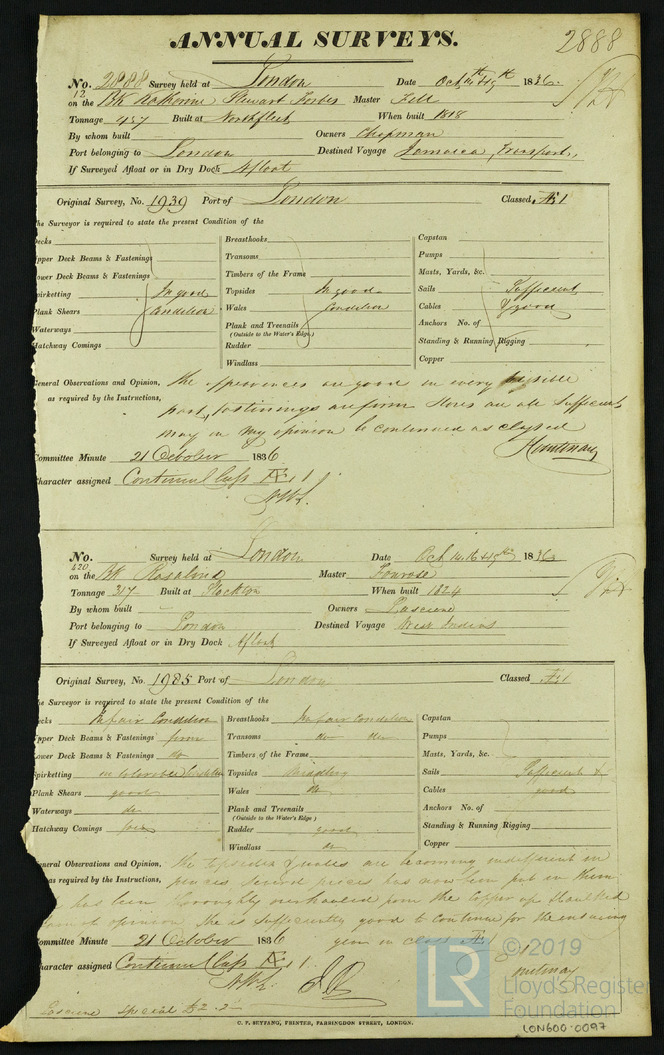 ANNUAL SURVEYS.
2888
No. 2888 Survey held at London Date Octr 14th & 19th 1836
12
on the Bk Katherine Stewart Forbes Master Fell
Tonnage 457 Built at Northfleet When built 1818
By whom built Owners Chapman
Port belonging to London Destined Voyage Jamaica, Transport,
If Surveyed Afloat or in Dry Dock Afloat
Original Survey, No. 1939 Port of London Classed Æ1
he Surveyor is required to state the present Condition of the
Decks Breasthooks Capstan
pper Deck Beams & Fastenings Transoms Pumps
ower Deck Beams & Fastenings Timbers of the Frame Masts, Yards, &c.
pirketting In good Topsides In good Sails Sufficient
lank Shears Condition Wales Condition Cables & good
Waterways Plank and Treenails Anchors No. of
(Outside to the Water's Edge.)
Hatchway Comings Rudder Standing & Running Rigging
Windlass Copper
eneral Observations and Opinion, the appearances are good in every visible
as required by the Instructions, part, fastenings are firm Stores are all Sufficient
may in my opinion be continued as classed
Committee Minute 21 October 1836
Character assigned Continued Class Æ1
No. Survey held at London Date Oct 14. 16 & 19th 1836
420
on the Bk Rosalind Master
Tonnage 317 Built at Stockton When built 1824
By whom built Owners Lascune
Port belonging to London Destined Voyage West Indies
If Surveyed Afloat or in Dry Dock Afloat
Original Survey, No. 1985 Port of London Classed Æ1
he Surveyor is required to state the present Condition of the
ecks In fair Condition Breasthooks In fair Condition Capstan
pper Deck Beams & Fastenings from Transoms do do Pumps
ower Deck Beams & Fastenings do Timbers of the Frame Masts, Yards, &c.
pirketting in tolerable Condition Topsides Middling Sails Sufficient &
Plank Shears good Wales do Cables good
Waterways do Plank and Treenails Anchors No. of
(Outside to the Water's Edge)
Hatchway Comings fair Rudder good Standing & Running Rigging
Windlass do Copper
eneral Observations and Opinion, the topsides & wales are becoming indifferent in
as required by the Instructions, places several pieces has now been put in them
has been thoroughly overhauled from the Copper up
opinion She is sufficiently good to Continue for the ensuing
year in class Æ1
ommittee Minute 21 October 1836
haracter assigned Continued Class Æ1
Lascune Special £2.2
C. F. SEYFANG, PRINTER, FARRINGDON STREET, LONDON.
LR
©2019
Lloyd's Register
Foundation
LON600-0097